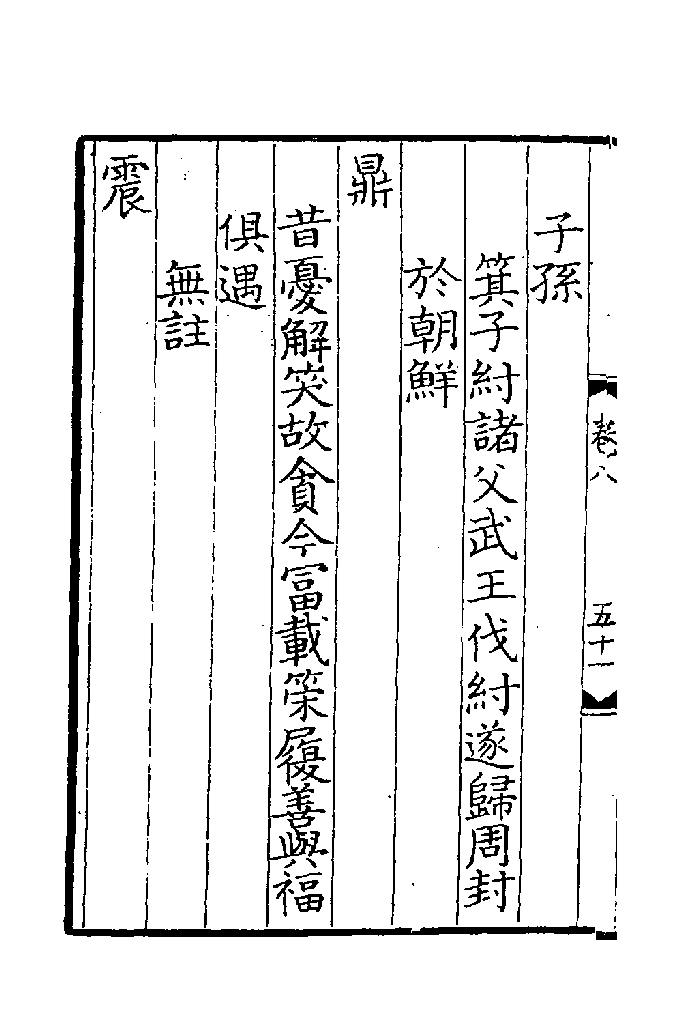 子孫
箕子紂諸父武王伐紂遂歸周封
於朝鮮
鼎
昔憂解笑故貧今富載筞履善與福
俱遇
無註
震
卷八
五十一